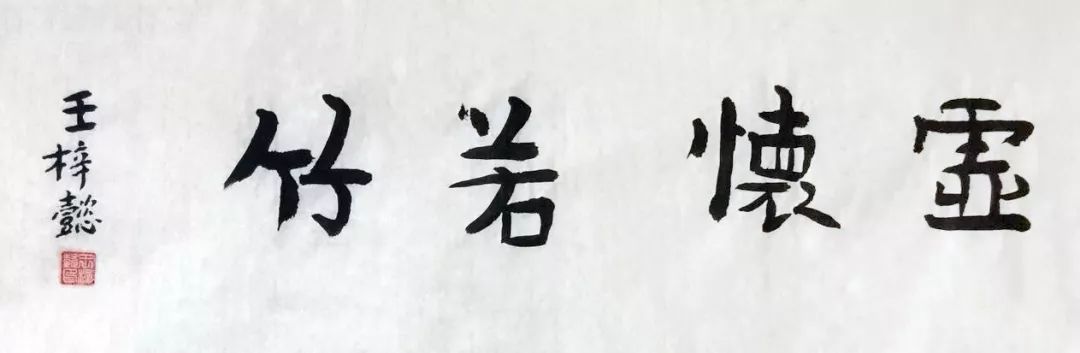 虛懷若竹
王梓懿